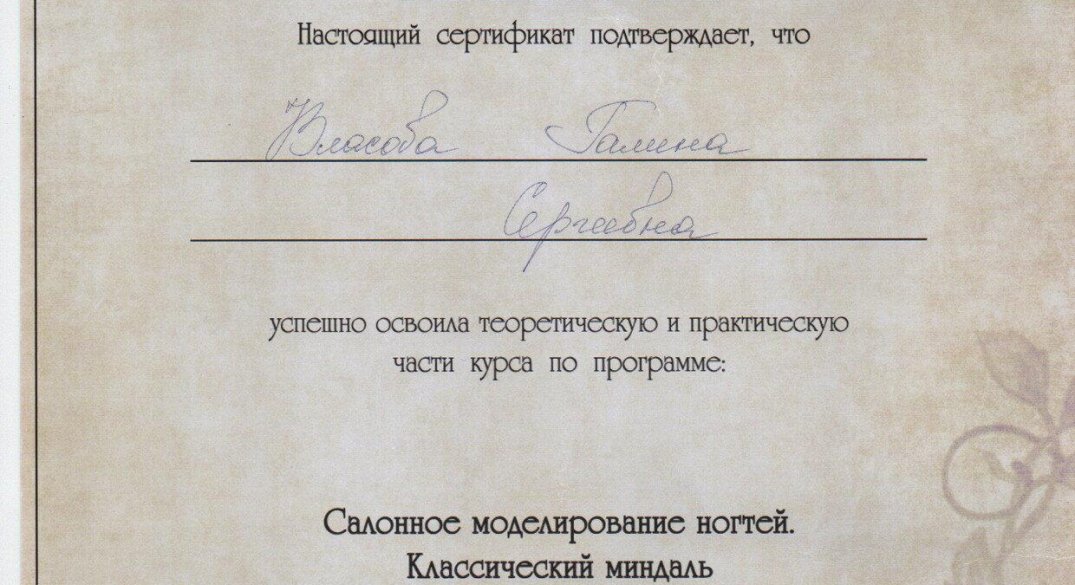 Настоящий сертификат подтверждает, что
Власова Галина
Сергеевна
успешно освоила теоретическую и практическую
части курса по программе:
Салонное моделирование ногтей.
Классический миндаль